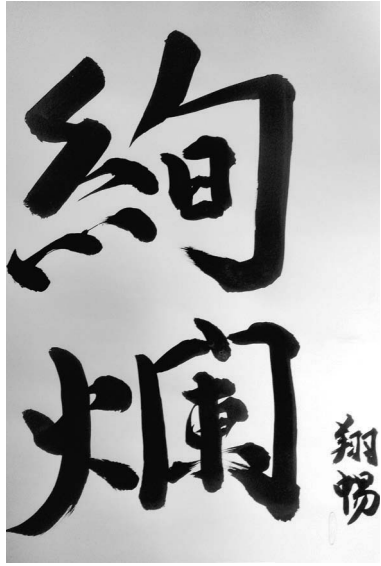 絢
爛
翔暢